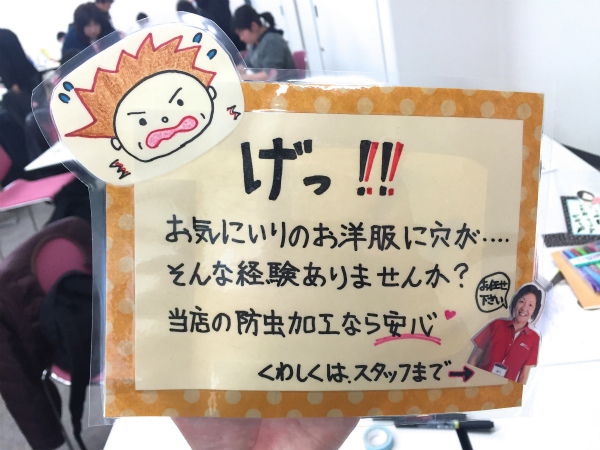 げっ!!!
お気にいりのお洋服に穴が‥‥
そんな経験ありませんか?
当店の防虫加工なら安心
お任せ
下さい
くわしくは、スタッフまで→